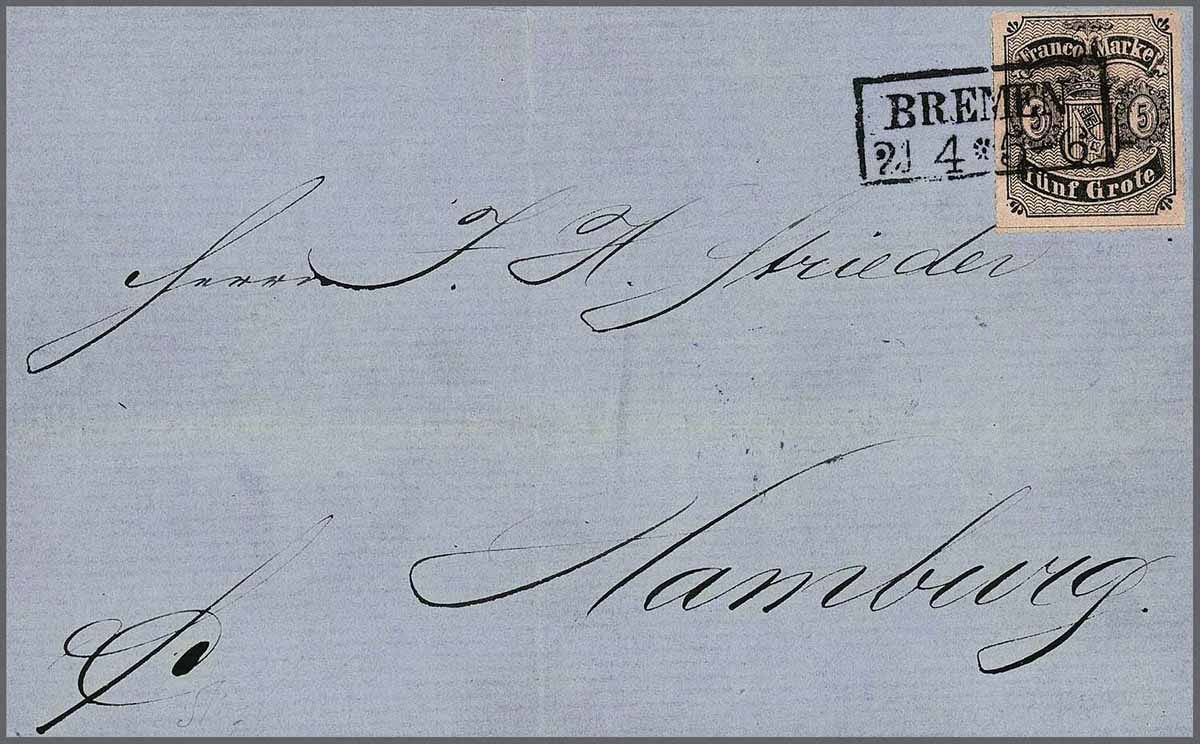 Franco Marke.
5 5
fünf Grote
BREMEN
21 4 * 5-6
Herrn J. H. Strieder
Hamburg.